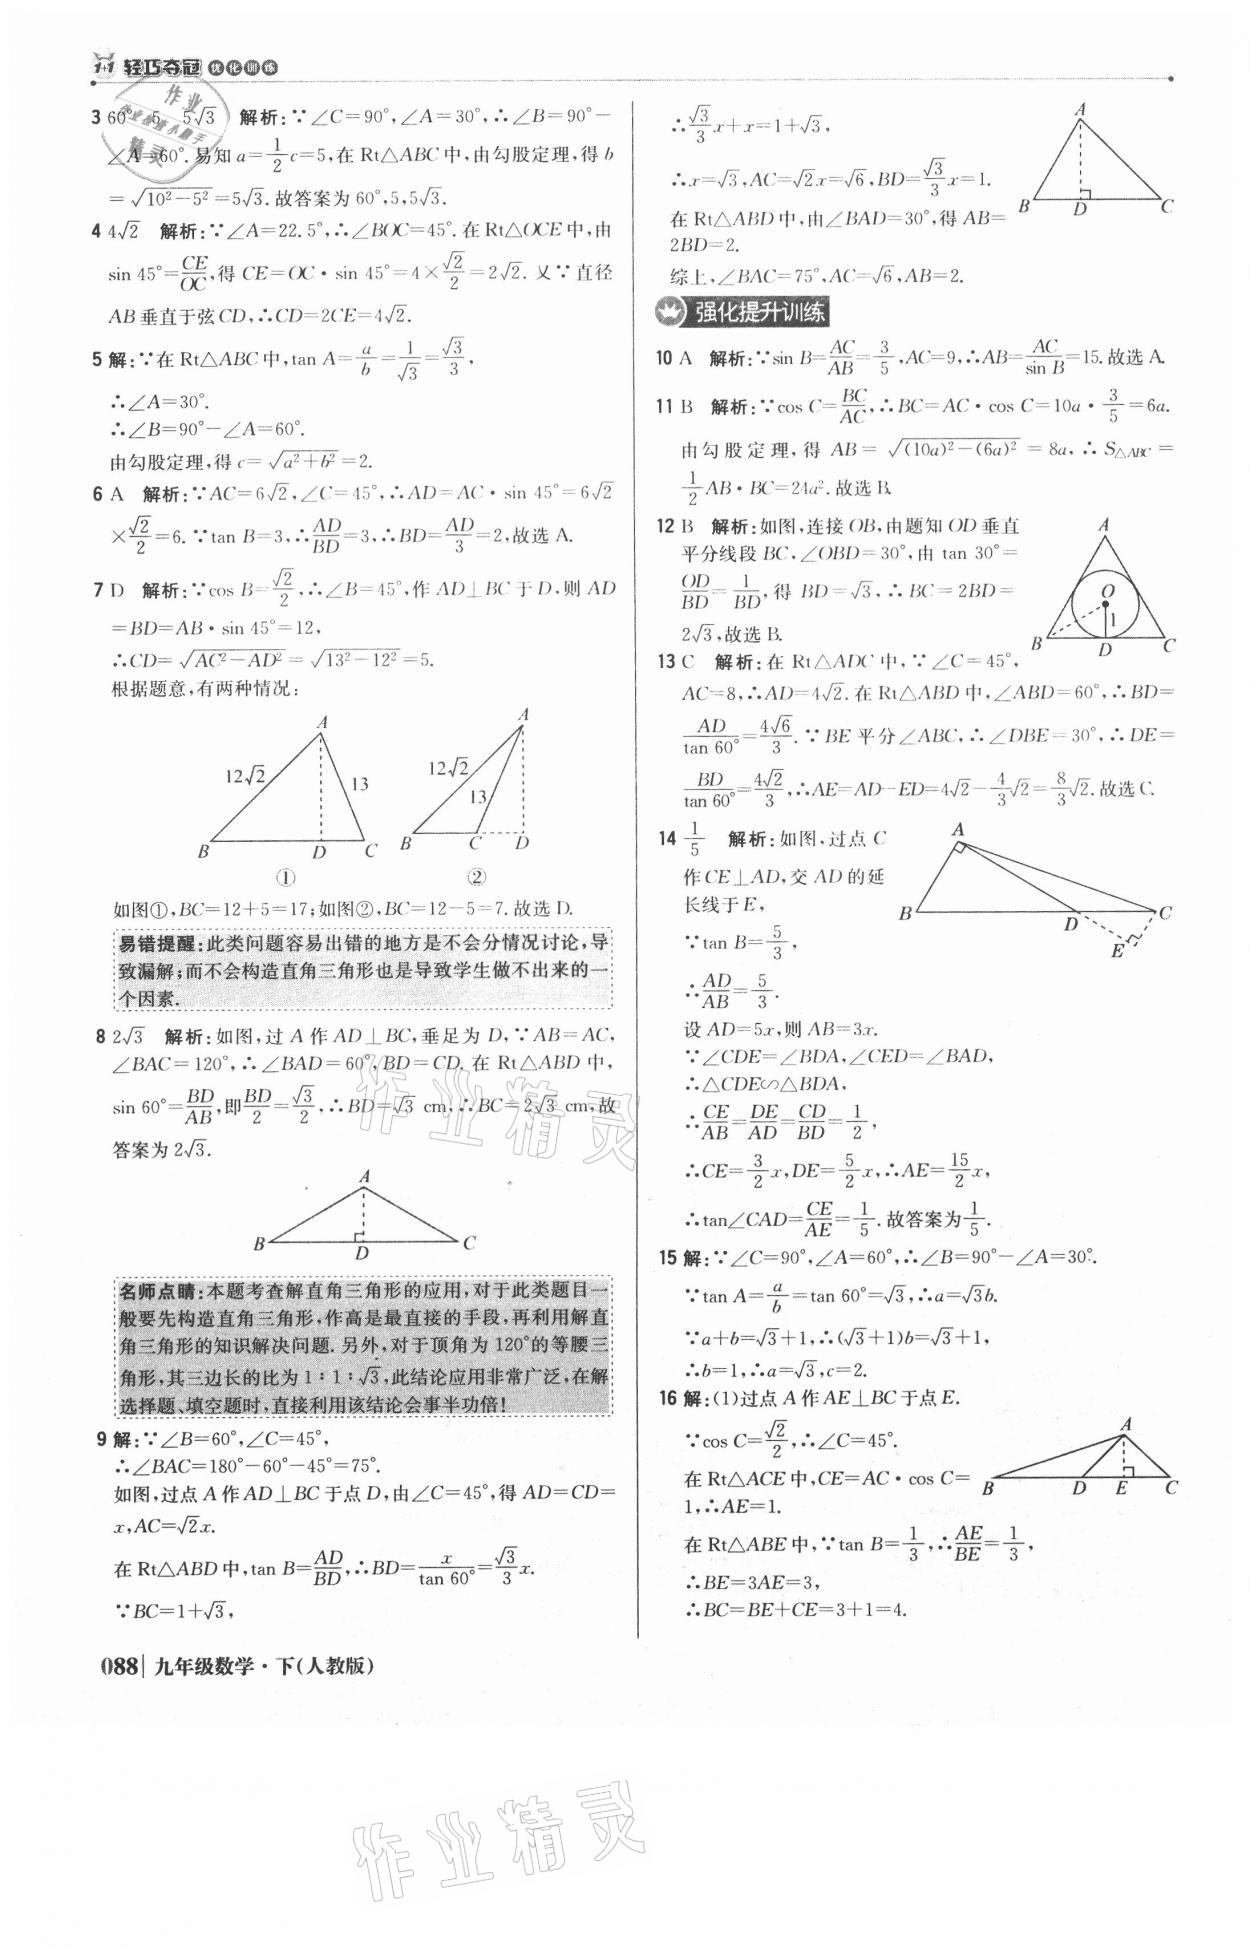 1+1 轻巧夺冠 优化训练
3 60° 5 5√3 解析:∵∠C=90°,∠A=30°,∴∠B=90°-
∠A=60°.易知a=1/2c=5,在Rt△ABC中,由勾股定理,得b
=√(10²-5²)=5√3.故答案为60°,5,5√3.
4 4√2 解析:∵∠A=22.5°,∴∠BOC=45°.在Rt△OCE中,由
sin 45°=CE/OC,得CE=OC·sin 45°=4×√2/2=2√2.又∵直径
AB垂直于弦CD,∴CD=2CE=4√2.
5 解:∵在Rt△ABC中,tan A=a/b=1/√3=√3/3,
∴∠A=30°.
∴∠B=90°-∠A=60°.
由勾股定理,得c=√(a²+b²)=2.
6 A 解析:∵AC=6√2,∠C=45°,∴AD=AC·sin 45°=6√2
×√2/2=6.∵tan B=3,∴AD/BD=3,∴BD=AD/3=2,故选A.
7 D 解析:∵cos B=√2/2,∴∠B=45°,作AD⊥BC于D,则AD
=BD=AB·sin 45°=12,
∴CD=√(AC²-AD²)=√(13²-12²)=5.
根据题意,有两种情况:
A 12√2 13 B D C ①
A 12√2 13 B C D ②
如图①,BC=12+5=17;如图②,BC=12-5=7.故选D.
易错提醒:此类问题容易出错的地方是不会分情况讨论,导
致漏解;而不会构造直角三角形也是导致学生做不出来的一
个因素.
8 2√3 解析:如图,过A作AD⊥BC,垂足为D,∵AB=AC,
∠BAC=120°,∴∠BAD=60°,BD=CD.在Rt△ABD中,
sin 60°=BD/AB,即BD/2=√3/2,∴BD=√3 cm,∴BC=2√3 cm,故
答案为2√3.
A B D C
名师点睛:本题考查解直角三角形的应用,对于此类题目一
般要先构造直角三角形,作高是最直接的手段,再利用解直
角三角形的知识解决问题.另外,对于顶角为120°的等腰三
角形,其三边长的比为1∶1∶√3,此结论应用非常广泛,在解
选择题、填空题时,直接利用该结论会事半功倍!
9 解:∵∠B=60°,∠C=45°,
∴∠BAC=180°-60°-45°=75°.
如图,过点A作AD⊥BC于点D,由∠C=45°,得AD=CD=
x,AC=√2x.
在Rt△ABD中,tan B=AD/BD,∴BD=x/tan 60°=√3/3x.
∵BC=1+√3,
∴√3/3x+x=1+√3,
∴x=√3,AC=√2x=√6,BD=√3/3x=1.
在Rt△ABD中,由∠BAD=30°,得AB=
2BD=2.
综上,∠BAC=75°,AC=√6,AB=2.
A B D C
强化提升训练
10 A 解析:∵sin B=AC/AB=3/5,AC=9,∴AB=AC/sin B=15.故选A.
11 B 解析:∵cos C=BC/AC,∴BC=AC·cos C=10a·3/5=6a.
由勾股定理,得AB=√((10a)²-(6a)²)=8a,∴S△ABC=
1/2AB·BC=24a².故选B.
12 B 解析:如图,连接OB,由题知OD垂直
平分线段BC,∠OBD=30°,由tan 30°=
OD/BD=1/BD,得BD=√3,∴BC=2BD=
2√3,故选B.
A O 1 B D C
13 C 解析:在Rt△ADC中,∵∠C=45°,
AC=8,∴AD=4√2.在Rt△ABD中,∠ABD=60°,∴BD=
AD/tan 60°=4√6/3.∵BE平分∠ABC,∴∠DBE=30°,∴DE=
BD/tan 60°=4√2/3,∴AE=AD-ED=4√2-4/3√2=8/3√2.故选C.
14 1/5 解析:如图,过点C
作CE⊥AD,交AD的延
长线于E,
∵tan B=5/3,
∴AD/AB=5/3.
A B D C E
设AD=5x,则AB=3x.
∵∠CDE=∠BDA,∠CED=∠BAD,
∴△CDE∽△BDA,
∴CE/AB=DE/AD=CD/BD=1/2,
∴CE=3/2x,DE=5/2x,∴AE=15/2x,
∴tan∠CAD=CE/AE=1/5.故答案为1/5.
15 解:∵∠C=90°,∠A=60°,∴∠B=90°-∠A=30°.
∵tan A=a/b=tan 60°=√3,∴a=√3b.
∵a+b=√3+1,∴(√3+1)b=√3+1,
∴b=1,∴a=√3,c=2.
16 解:(1)过点A作AE⊥BC于点E.
∵cos C=√2/2,∴∠C=45°.
在Rt△ACE中,CE=AC·cos C=
1,∴AE=1.
A B D E C
在Rt△ABE中,∵tan B=1/3,∴AE/BE=1/3,
∴BE=3AE=3,
∴BC=BE+CE=3+1=4.
088 九年级数学·下(人教版)
作业精灵
作业精灵